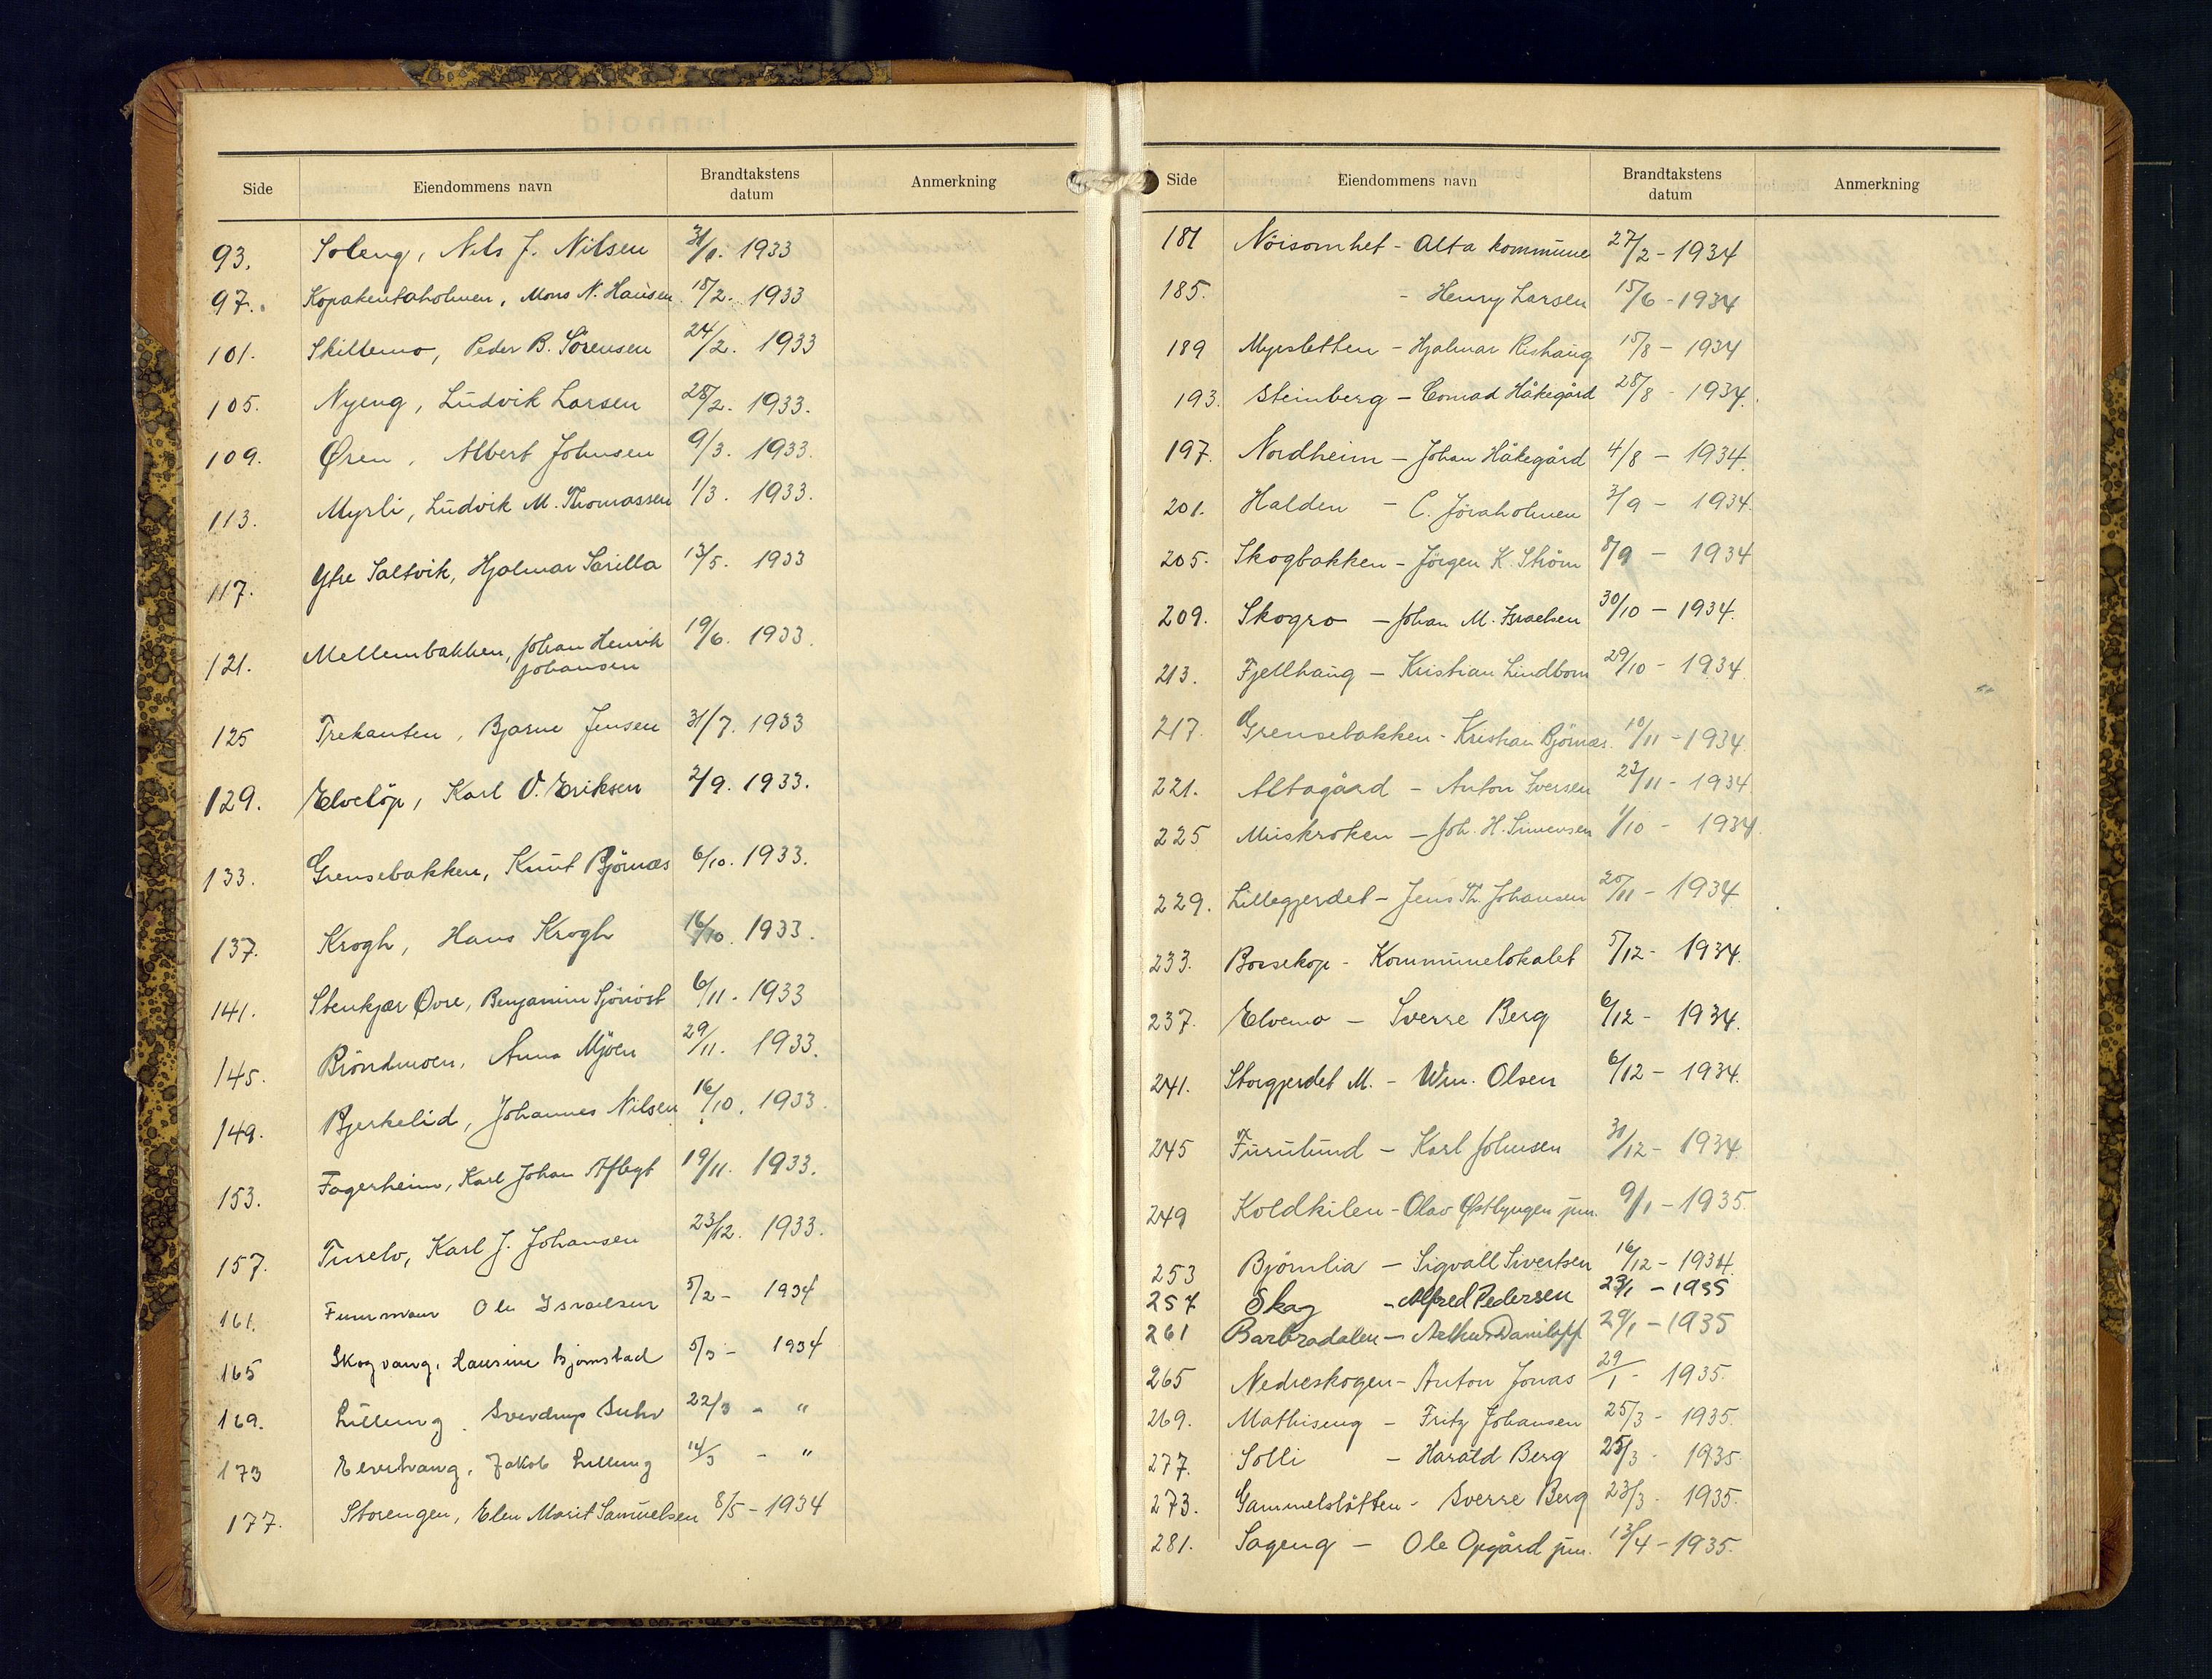 Side Eiendommens navn Brandtakstens datum Anmerkning
93. Soleng, Nils J. Nilsen 31/1. 1933
97. Kopakentaholmen, Mons N. Hansen 18/2. 1933
101. Skillemo, Peder B. Sörensen 24/2. 1933
105. Nyeng, Ludvik Larsen 28/2. 1933.
109. Øren, Albert Johnsen 9/3. 1933.
113. Myrli, Ludvik M. Thomassen 1/3. 1933.
117. Ytre Saltvik, Hjalmar Sarilla 13/5. 1933
121. Mellembakken, Johan Henrik 19/6. 1933.
Johansen
125 Trekanten, Bjarne Jensen 31/7. 1933
129. Elvelöp, Karl O. Eriksen 2/9. 1933.
133. Grensebakken, Knut Björnæs 6/10. 1933.
137. Krogh, Hans Krogh 16/10. 1933.
141. Stenkjær Øvre, Benjamin 6/11. 1933
145. Bröndmoen, Anna Mjöen 29/11. 1933.
149. Bjerkelid, Johannes Nilsen 16/10. 1933.
153. Fagerheim, Karl Johan 19/11. 1933.
157. Turelv, Karl J. Johansen 23/12. 1933.
161. Ole Israelsen 5/2 - 1934
165 Skogvang, Hansine Bjørnstad 5/3 - 1934
169. Lilleng. Sverdrup Suhr 22/3 - "
173 Elvehaug, Jakob Lilleng 14/3 - "
177. Storengen, Elen Marit Samuelsen 8/5 - 1934
Side Eiendommens navn Brandtakstens datum Anmerkning
181 Nöisomhet - Alta kommune 27/2 - 1934
185. - Henry Larsen 15/6 - 1934
189 Myrsletten - Hjalmar Rishaug 15/8 - 1934
193. Steinberg - Conrad Håkegård 28/8 - 1934.
197. Nordheim - Johan Håkegård 4/8 - 1934.
201. Halden - C. Joraholmen 3/9 - 1934.
205. Skogbakken - Jörgen K. Ström 8/9 - 1934
209. Skogro - Johan M. Israelsen 30/10 - 1934.
213. Fjellhaug - Kristian Lindbom 29/10 - 1934.
217. Grensebakken - Kristian Björnæs. 10/11 - 1934.
221. Altagård - Anton Iversen 23/11 - 1934
225 Muskroken - Joh. H. Simensen 1/10 - 1934.
229. Lillegjerdet - Jens Th. Johansen 20/11 - 1934
233. Bossekop - Kommunelokalet 5/12 - 1934.
237. Elvemo - Sverre Berg 6/12 - 1934.
241. Storgjerdet M. - Wm. Olsen 6/12 - 1934.
245 Furulund - Karl Johnsen 31/12 - 1934.
249 Koldkilen - Olav Østlyngen jun. 9/1 - 1935.
253 Björnlia - Sigvall Sivertsen 16/12 - 1934.
257 Skag - Alfred Pedersen 23/1 - 1935
261 Barbradalen - Arthur Daniloff 29/1 - 1935
265 Nedreskogen - Anton Jonas 29/1 - 1935.
269. Mathiseng - Fritz Johansen 25/3 - 1935.
277. Solli - Harald Berg 25/3 - 1935
273. Gammelslåtten - Sverre Berg 23/3 - 1935.
281. Sageng - Ole Opgård jun. 13/4 - 1935.